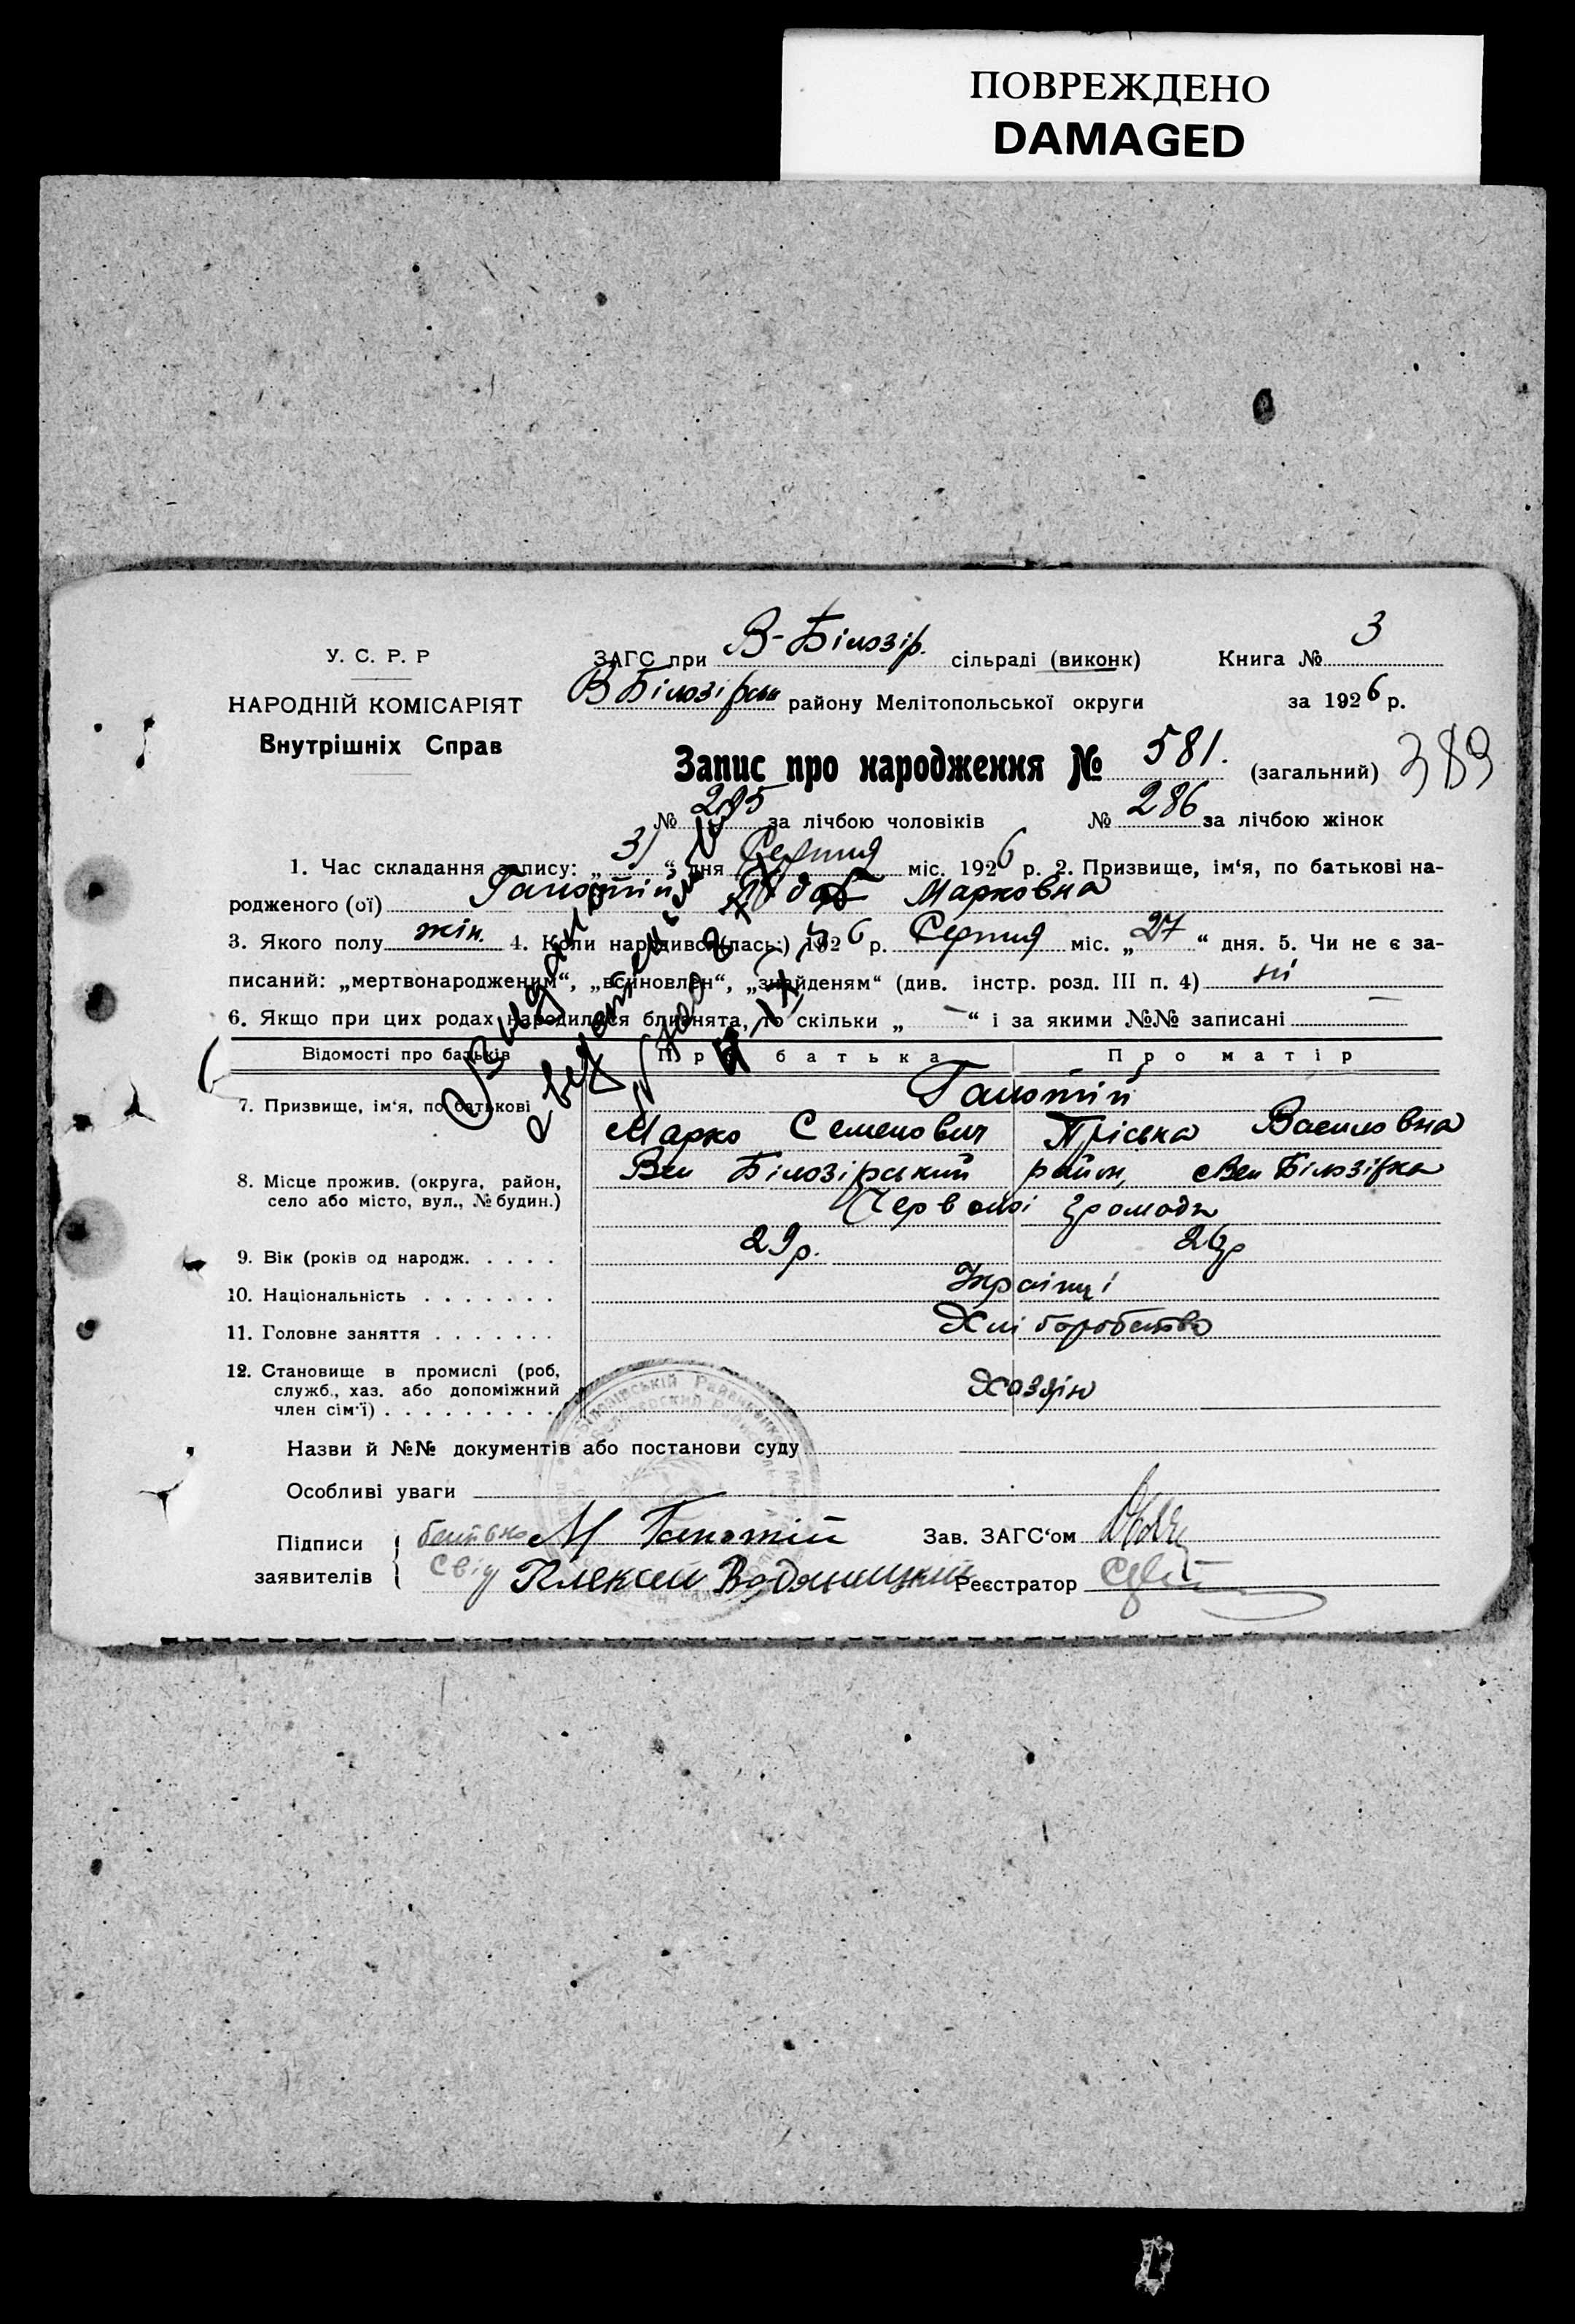 ПОВРЕЖДЕНО
DAMAGED
У. С. Р. Р
НАРОДНІЙ КОМІСАРІЯТ
Внутрішніх Справ
ЗАГС при В-Білозір. сільраді (виконк) Книга № 3
В Білозірськ району Мелітопольської округи за 1926 р.
Запис про народження № 581. (загальний) 389
№ 295 за лічбою чоловіків № 286 за лічбою жінок
1. Час складання запису: „31“ дня Серпня міс. 1926 р. 2. Призвище, ім‘я, по батькові на-
родженого (ої) Марковна
3. Якого полу жін. 4. Коли народився(лась:) 1926 р. Серпня міс. „27“ дня. 5. Чи не є за-
писаний: „мертвонародженим“, „всиновлен“, „знайденям“ (див. інстр. розд. III п. 4) ні
6. Якщо при цих родах народилися близнята, то скільки „ — “ і за якими №№ записані —
Відомості про батьків Про батька Про матір
7. Призвище, ім‘я, по батькові
Марко Семенович Пріська Василовна
8. Місце прожив. (округа, район, село або місто, вул., № будин.) Вел Білозірський район, Вел Білозірка
Червоної громади
9. Вік (років од народж. . . . . 29р. 26р
10. Національність . . . . . . . Українці
11. Головне заняття . . . . . . . Хліборобство
12. Становище в промислі (роб, служб., хаз. або допоміжний член сім‘ї) . . . . . . . . . Хозяїн
Назви й №№ документів або постанови суду
Особливі уваги
Підписи заявителів
батько М
Свід Алексей Водяницкий
Зав. ЗАГС‘ом
Реєстратор